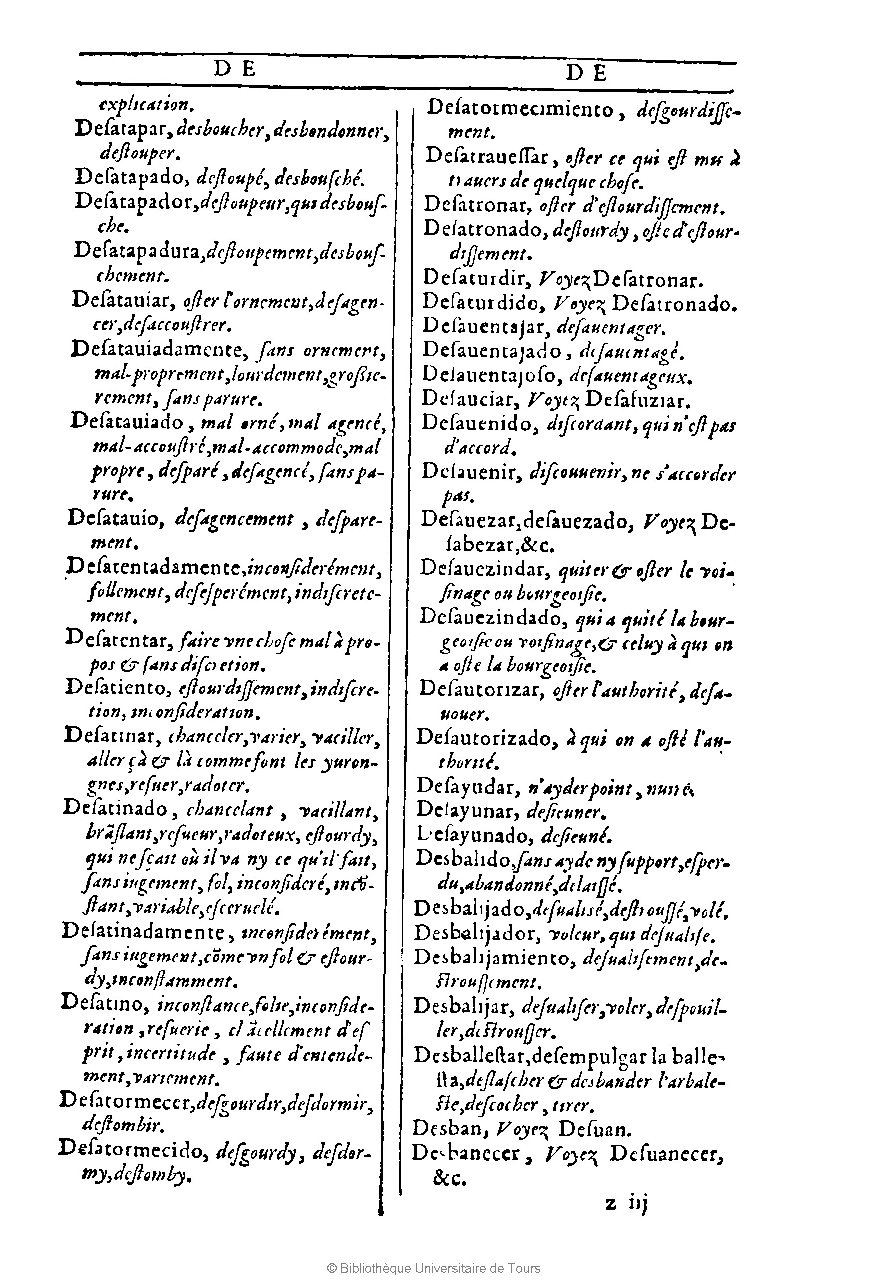 D E
explication.
Deſatapar, desboucher, desbondonner,
deſtouper.
Deſatapado, deſtoupé, desbouſché.
Deſatapador, deſtoupeur, qui desbouſ-
che.
Deſatapadura, deſtoupement, desbouſ-
chement.
Deſatauiar, oſter l'ornement, deſagen-
cer, deſaccouſtrer.
Deſatauiadamente, ſans ornement,
mal-proprement, lourdement, groſſie-
rement, ſans parure.
Deſatauiado, mal orné, mal agencé,
mal-accouſtré, mal-accommodé, mal
propre, deſparé, deſagencé, ſans pa-
rure.
Deſatauio, deſagencement, deſpare-
ment.
Deſatentadamente, inconſiderément,
follement, deſeſperément, indiſcrete-
ment.
Deſatentar, faire vne choſe mal à pro-
pos & ſans diſcretion.
Deſatiento, eſtourdiſſement, indiſcre-
tion, inconſideration.
Deſatinar, chanceler, varier, vaciller,
aller çà & là comme font les yuron-
gnes, reſuer, radoter.
Deſatinado, chancelant, vacillant,
brãſlant, reſueur, radoteux, eſtourdy,
qui ne ſçait où il va ny ce qu'il fait,
ſans iugement, fol, inconſideré, incõ-
ſtant, variable, eſceruelé.
Deſatinadamente, inconſiderément,
ſans iugement, cõme vn fol & eſtour-
dy, inconſtamment.
Deſatino, inconſtance, folie, inconſide-
ration, reſuerie, chãcellement d'eſ
prit, incertitude, faute d'entende-
ment, variement.
Deſatormecer, deſgourdir, deſdormir,
deſtombir.
Deſatormecido, deſgourdy, deſdor-
my, deſtomby.
D E
Deſatormecimiento, deſgourdiſſe-
ment.
Deſatraueſſar, oſter ce qui eſt mis à
trauers de quelque choſe.
Deſatronar, oſter d'eſtourdiſſement.
Deſatronado, deſtourdy, oſté d'eſtour-
diſſement.
Deſaturdir, Voyez Deſatronar.
Deſaturdido, Voyez Deſatronado.
Deſauentajar, deſauentager.
Deſauentajado, deſauentagé.
Deſauentajoſo, deſauentageux.
Deſauciar, Voyez Deſafuziar.
Deſauenido, diſcordant, qui n'eſt pas
d'accord.
Deſauenir, diſcouuenir, ne s'accorder
pas.
Deſauezar, deſauezado, Voyez De-
ſabezar, &c.
Deſauezindar, quiter & oſter le voi-
ſinage ou bourgeoiſie.
Deſauezindado, qui a quité la bour-
geoiſie ou voiſinage, & celuy à qui on
a oſté la bourgeoiſie.
Deſautorizar, oſter l'authorité, deſa-
uouer.
Deſautorizado, à qui on a oſté l'au-
thorité.
Deſayudar, n'ayder point, nuire.
Deſayunar, deſieuner.
Deſayunado, deſieuné.
Desbalido, ſans ayde ny ſupport, eſper-
du, abandonné, delaiſſé.
Desbalijado, deſualisé, deſtrouſſé, volé.
Desbalijador, voleur, qui deſualiſe.
Desbalijamiento, deſualiſement, de-
ſtrouſſement.
Desbalijar, deſualiſer, voler, deſpouil-
ler, deſtrouſſer.
Desballeſtar, deſempulgar la balle-
ſta, deſlaſcher & desbander l'arbale-
ſte, deſcocher, tirer.
Desban, Voyez Deſuan.
Desbanecer, Voyez Deſuanecer,
&c.
z iij
© Bibliothèque Universitaire de Tours